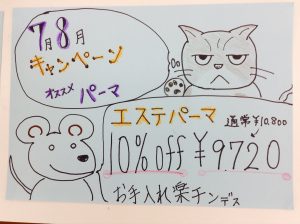 7月8月
キャンペーン
オススメ パーマ
エステパーマ 通常¥10.800
10%off ¥9720
お手入れ楽チンデス